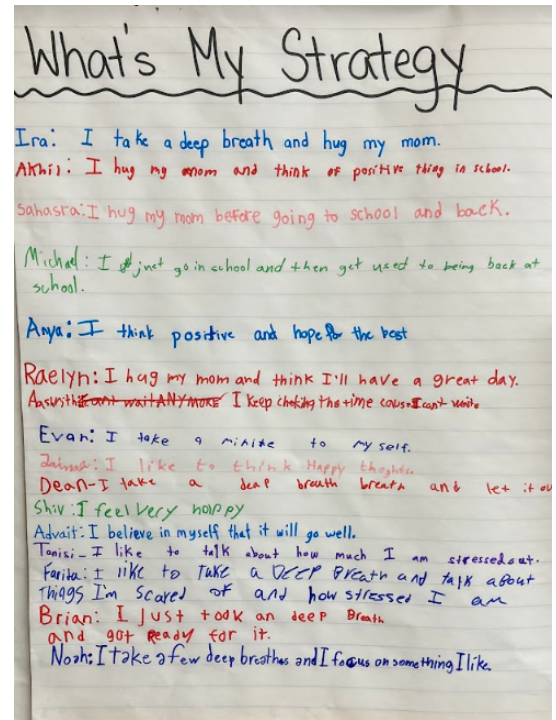 What's My Strategy
Ira: I take a deep breath and hug my mom.
Akhil: I hug my mom and think of positive thing in school.
Sahasra: I hug my mom before going to school and back.
Michael: I just go in school and then get used to being back at
school.
Anya: I think positive and hope for the best
Raelyn: I hug my mom and think I'll have a great day.
I keep cheking the time cause I cant wait
Evan: I take a minite to my self.
I like to think Happy thoghts.
Dean-I take a deap breath breath and let it ou
Shiv: I feel very happy
Advait: I believe in myself that it will go well.
Tanisi- I like to talk about how much I am stressed out.
Farita: I like to take a DEEP Breath and talk about
Thiggs I'm scared of and how stressed I am
Brian: I Just took an deep Breath
and got Ready for it.
Noah: I take a few deep breathes and I focus on something I like.